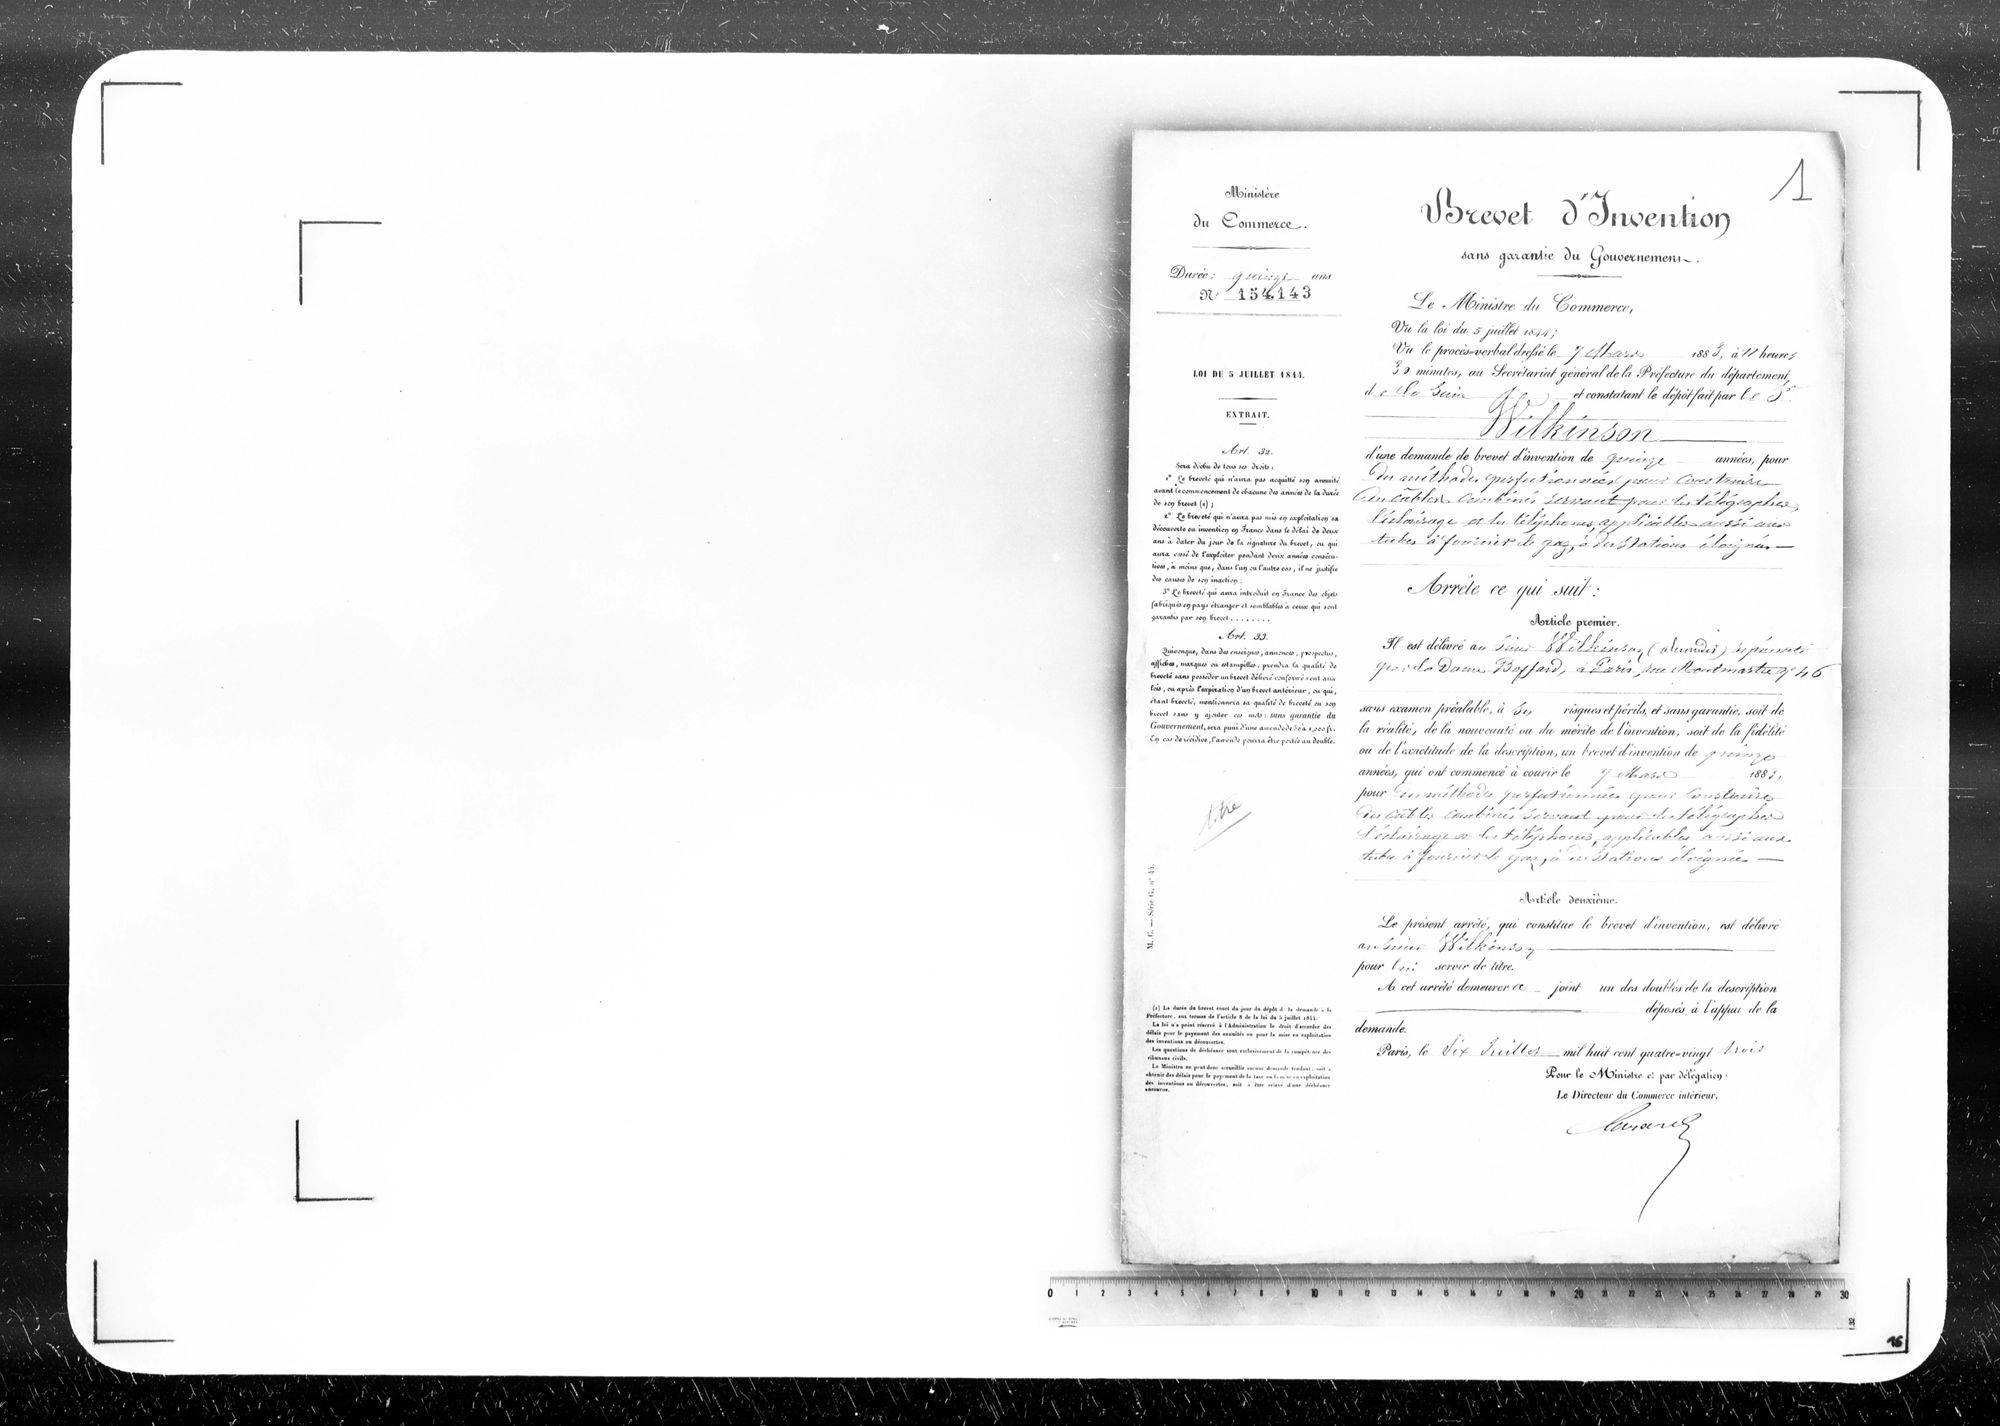 1
Ministère
du Commerce.
Durée: quinze ans
N° 154,143
LOI DU 5 JUILLET 1844.
EXTRAIT.
Art. 32.
Sera déchu de tous ses droits:
1° Le breveté qui n'aura pas acquitté son annuité
avant le commencement de chacune des années de la durée
de son brevet (1);
2° Le breveté qui n'aura pas mis en exploitation sa
découverte ou invention en France dans le délai de deux
ans à dater du jour de la signature du brevet, ou qui
aura cessé de l'exploiter pendant deux années consécu-
tives, à moins que, dans l'un ou l'autre cas, il ne justifie
des causes de son inaction;
3° Le breveté qui aura introduit en France des objets
fabriqués en pays étranger et semblables à ceux qui sont
garantis par son brevet........
Art. 33.
Quiconque, dans des enseignes, annonces, prospectus,
affiches, marques ou estampilles, prendra la qualité de
breveté sans posséder un brevet délivré conformément aux
lois, ou après l'expiration d'un brevet antérieur, ou qui,
étant breveté, mentionnera sa qualité de breveté ou son
brevet sans y ajouter ces mots: sans garantie du
Gouvernement, sera puni d'une amende de 50 à 1,000 fr.
En cas de récidive, l'amende pourra être portée au double.
M. C. — Série G, n° 44.
(1) La durée du brevet court du jour du dépôt de la demande à la
Préfecture, aux termes de l'article 8 de la loi du 5 juillet 1844.
La loi n'a point réservé à l'Administration le droit d'accorder des
délais pour le payement des annuités ou pour la mise en exploitation
des inventions ou découvertes.
Les questions de déchéance sont exclusivement de la compétence des
tribunaux civils.
Le Ministre ne peut donc accueillir aucune demande tendant, soit à
obtenir des délais pour le payement de la taxe ou la mise en exploitation
des inventions ou découvertes, soit à être relevé d'une déchéance
encourue.
Brevet d'Invention
sans garantie du Gouvernement.
Le Ministre du Commerce,
Vu la loi du 5 juillet 1844;
Vu le procès-verbal dressé le 7 Mars 1883, à 11 heures
30 minutes, au Secrétariat général de la Préfecture du département
de la Seine et constatant le dépôt fait par le Sr
Wilkinson
d'une demande de brevet d'invention de quinze années, pour
des méthodes perfectionnées pour construire
des câbles combinés servant pour les télégraphes,
l'éclairage et les téléphones, applicables aussi aux
tubes à fournir le gaz, à des stations éloignées —
Arrête ce qui suit:
Article premier.
Il est délivré au Sieur Wilkinson (Alexander) représenté
par la Dame Boffard, à Paris, rue Montmartre n° 46
sans examen préalable, à ses risques et périls, et sans garantie, soit de
la réalité, de la nouveauté ou du mérite de l'invention, soit de la fidélité
ou de l'exactitude de la description, un brevet d'invention de quinze
années, qui ont commencé à courir le 7 Mars 1883,
pour des méthodes perfectionnées pour construire
des câbles combinés servant pour les télégraphes
l'éclairage et les téléphones, applicables aussi aux
tubes à fournir le gaz, à des stations éloignées —
Article deuxième.
Le présent arrêté, qui constitue le brevet d'invention, est délivré
au Sieur Wilkinson
pour lui servir de titre.
A cet arrêté demeurera joint un des doubles de la description
déposés à l'appui de la
demande.
Paris, le Six Juillet mil huit cent quatre-vingt trois
Pour le Ministre et par délégation.
Le Directeur du Commerce intérieur.
0 1 2 3 4 5 6 7 8 9 10 11 12 13 14 15 16 17 18 19 20 21 22 23 24 25 26 27 28 29 30
16